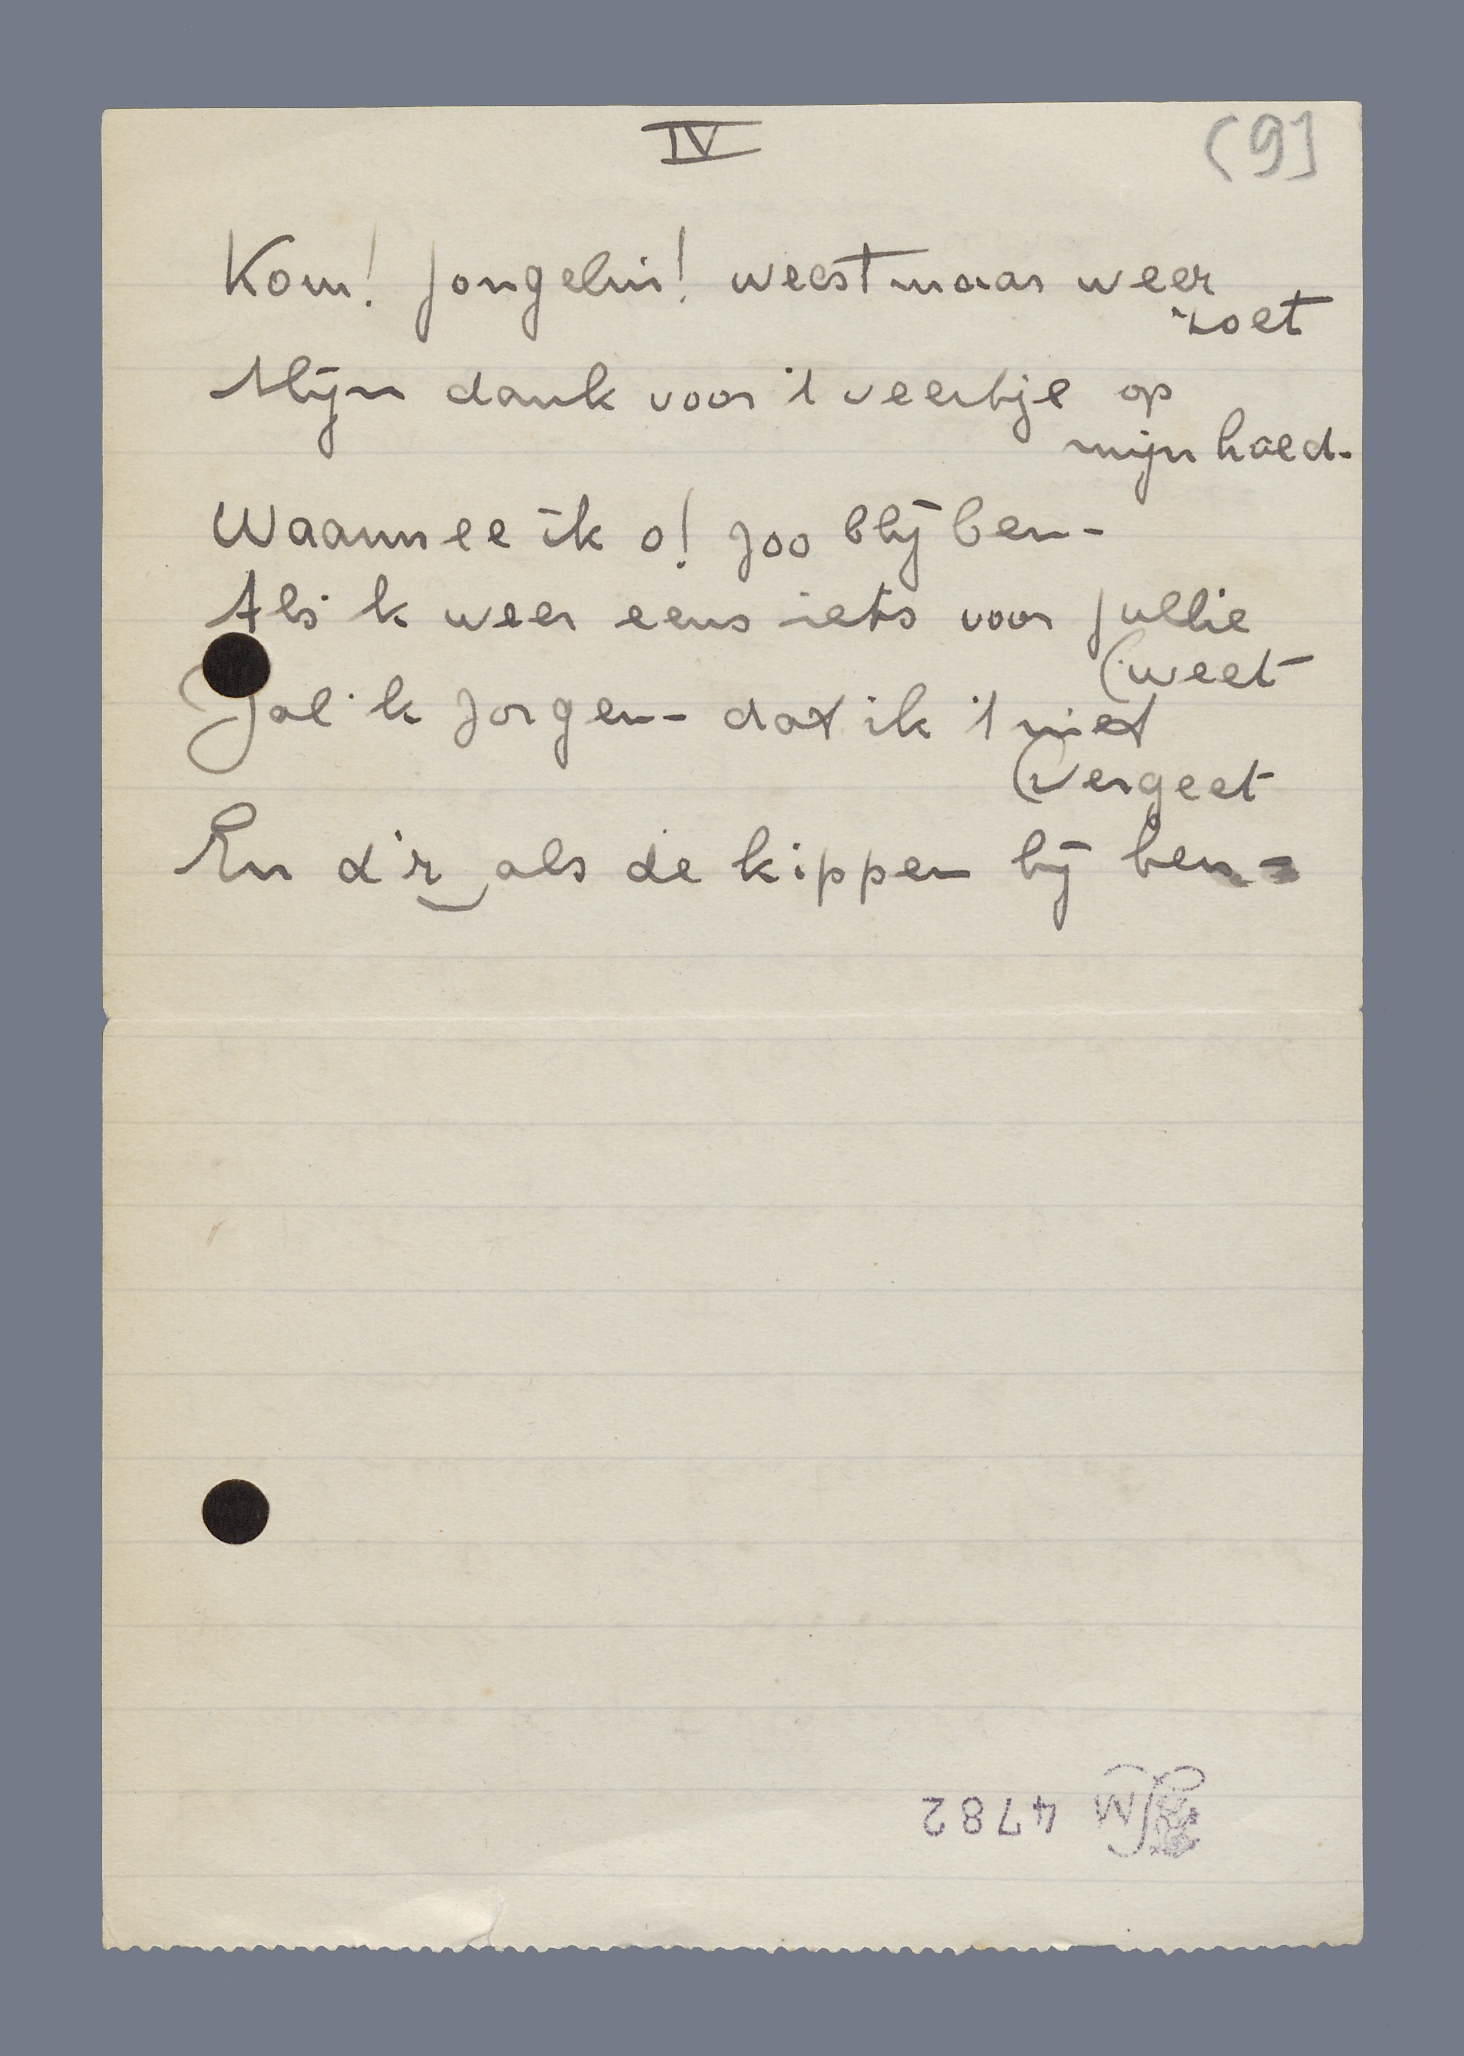 IV
(9)
Kom! Jongelui! weest maar weer
zoet
Mijn dank voor 't veertje op
mijn hoed.
Waarmee ik o! zoo blij ben -
Als 'k weer eens iets voor jullie
(weet
Zal 'k zorgen - dat ik 't niet
(vergeet
En d'r als de kippen bij ben -
4782